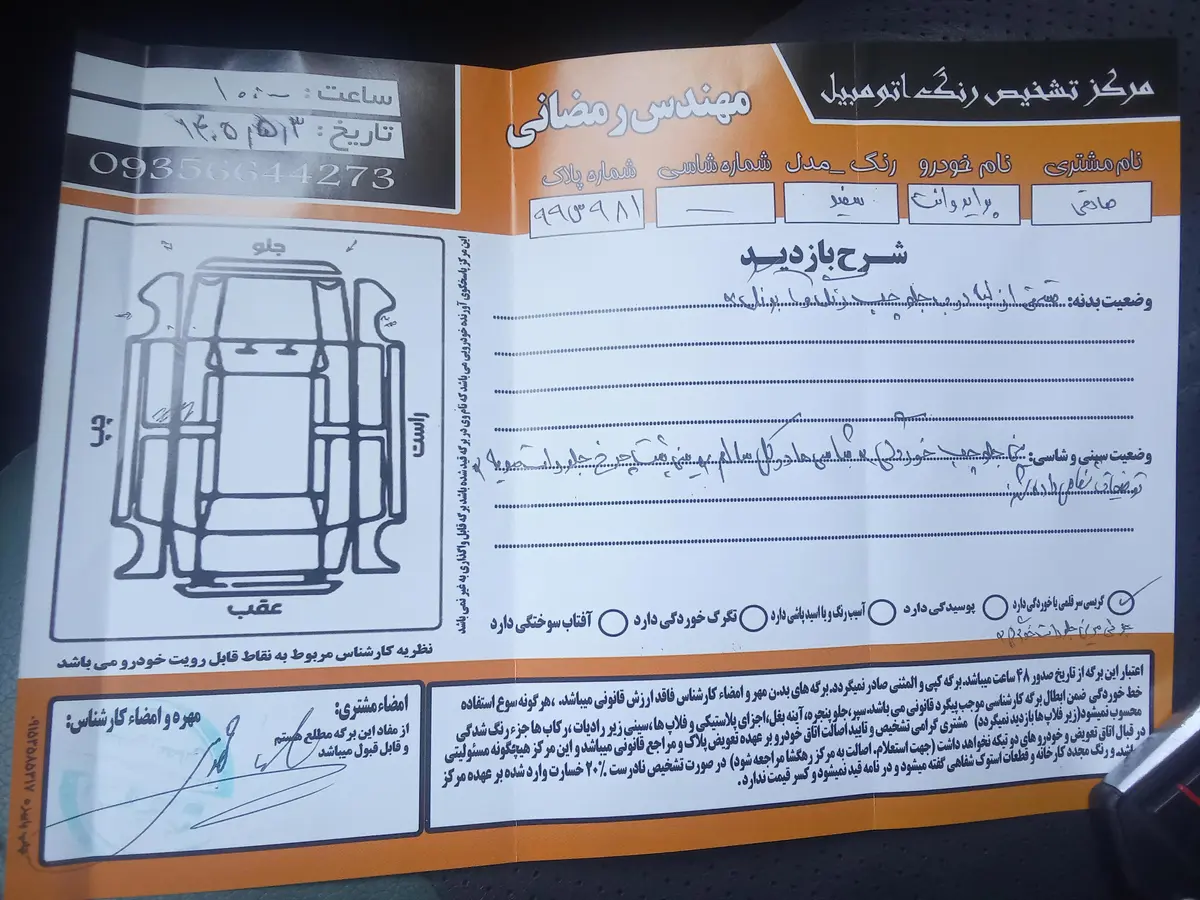 مرکز تشخیص رنگ اتومبیل
مهندس رمضانی
ساعت: ۱۰:۰۰
تاریخ: ۱۴۰۵/۵/۳
09356644273
نام مشتری
نام خودرو
رنگ_مدل
شماره شاسی
شماره پلاک
صادقی
پراید وانت
سفید
—
۹۸۱س۹۹
شرح بازدید
وضعیت بدنه: درب جلو چپ رنگ
وضعیت سینی و شاسی: جلو چپ خوردگی شاسی ها در کل سالم سینی پشت چرخ جلو راست
توضیحات شفاهی داده شد
گریسی سر قلمی یا خوردگی دارد
پوسیدگی دارد
آسیب رنگ و یا اسید پاشی دارد
تگرگ خوردگی دارد
آفتاب سوختگی دارد
جلو
چپ
راست
عقب
این مرکز پاسخگوی آورنده خودرویی می باشد که نام وی در برگه قید شده باشد برگه قابل واگذاری به غیر نمی باشد
نظریه کارشناس مربوط به نقاط قابل رویت خودرو می باشد
اعتبار این برگه از تاریخ صدور ۴۸ ساعت میباشد. برگه کپی و المثنی صادر نمیگردد. برگه های بدن مهر و امضاء کارشناس فاقد ارزش قانونی میباشد. ،هرگونه سوء استفاده
خط خوردگی ضمن ابطال برگه کارشناسی موجب پیگرد قانونی می باشد. سپر، جلو پنجره، آینه بغل، اجزای پلاستیکی و قلاب ها، سینی زیر رادیات، رکاب ها جزء رنگ شدگی
محسوب نمیشود(زیر قلاب ها بازدید نمیگردد) مشتری گرامی تشخیص و تایید اصالت اتاق خودرو بر عهده تعویض پلاک و مراجع قانونی میباشد و این مرکز هیچگونه مسئولیتی
در قبال اتاق تعویض و خودرو های دو تیکه نخواهد داشت (جهت استعلام. اصالت به مرکز رهگشا مراجعه شود) در صورت تشخیص نادرست ۲۰٪ خسارت وارد شده بر عهده مرکز
باشد. و رنگ مجدد کارخانه و قطعات استوک شفاهی گفته میشود و در نامه قید نمیشود و کسر قیمت ندارد.
امضاء مشتری:
از مفاد این برگه مطلع هستم
و قابل قبول میباشد
مهره و امضاء کارشناس: